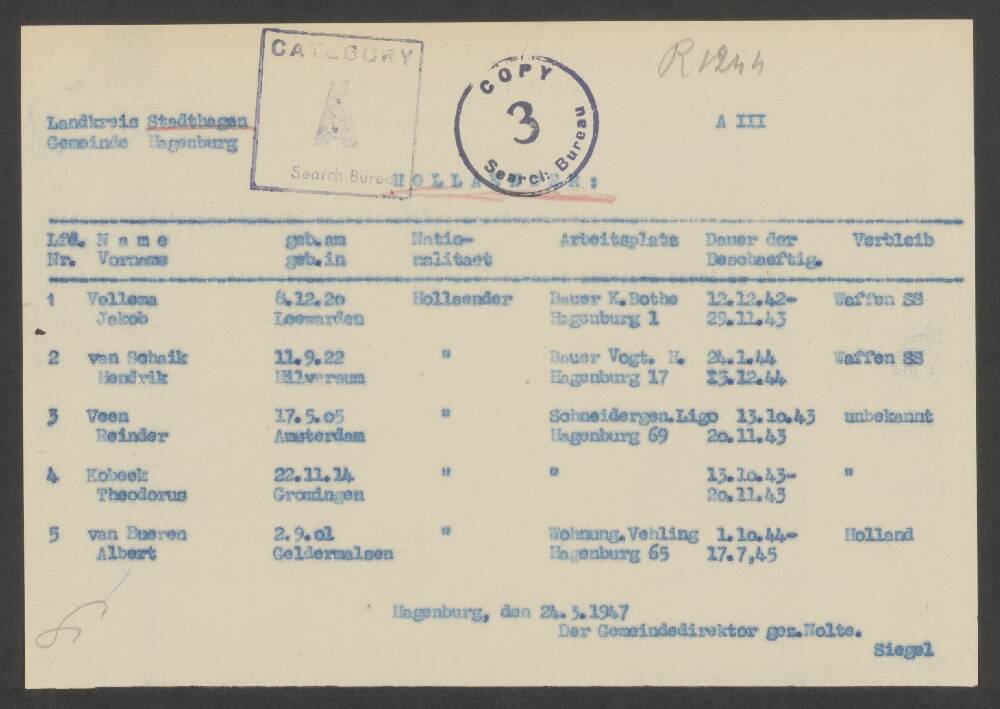 R 1244
CATEGORY
A
Search Bureau
COPY
3
Search Bureau
Landkreis Stadthagen
A III
Gemeinde Hagenburg
HOLLAENDER:
Lfd. Name geb.am Natio- Arbeitsplatz Dauer der Verbleib
Nr. Vorname geb.in nalitaet Beschaeftig.
1 Vellema 8.12.20 Hollaender Bauer K.Bothe 12.12.42- Waffen SS
Jakob Leewarden Hagenburg 1 29.11.43
2 van Schaik 11.9.22 " Bauer Vogt. H. 24.1.44 Waffen SS
Hendrik Hilversum Hagenburg 17 13.12.44
3 Veen 17.5.05 " Schneidergen.Ligo 13.10.43 unbekannt
Reinder Amsterdam Hagenburg 69 20.11.43
4 Kobeek 22.11.14 " " 13.10.43- "
Theodorus Groningen 20.11.43
5 van Bueren 2.9.01 " Wohnung.Vehling 1.10.44- Holland
Albert Geldermalsen Hagenburg 65 17.7,45
Hagenburg, den 24.3.1947
Der Gemeindedirektor gez.Nolte.
Siegel